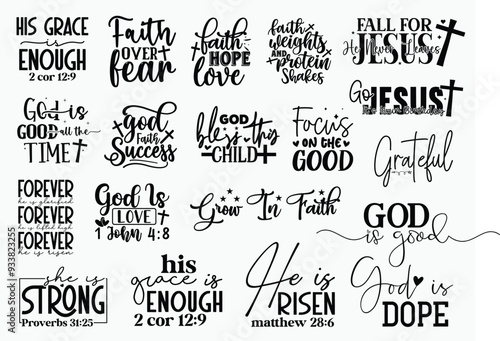 HIS GRACE
is
ENOUGH
2 cor 12:9
Faith
OVER
fear
faith
HOPE
love
faith
weights
AND
protein
Shakes
FALL FOR
JESUS
He Never Leaves
God is
GOOD all the
TIME
god
Faith
Success
GOD
bless this
CHILD
Focus
ON THE
GOOD
Go
JESUS
Grateful
FOREVER
he is glorified
FOREVER
he is lifted high
FOREVER
he is risen
God Is
LOVE
1 John 4:8
Grow In Faith
GOD
is good
she is
STRONG
Proverbs 31:25
his
grace is
ENOUGH
2 cor 12:9
He is
RISEN
matthew 28:6
God is
DOPE
Adobe Stock | #933823255
Adobe Stock